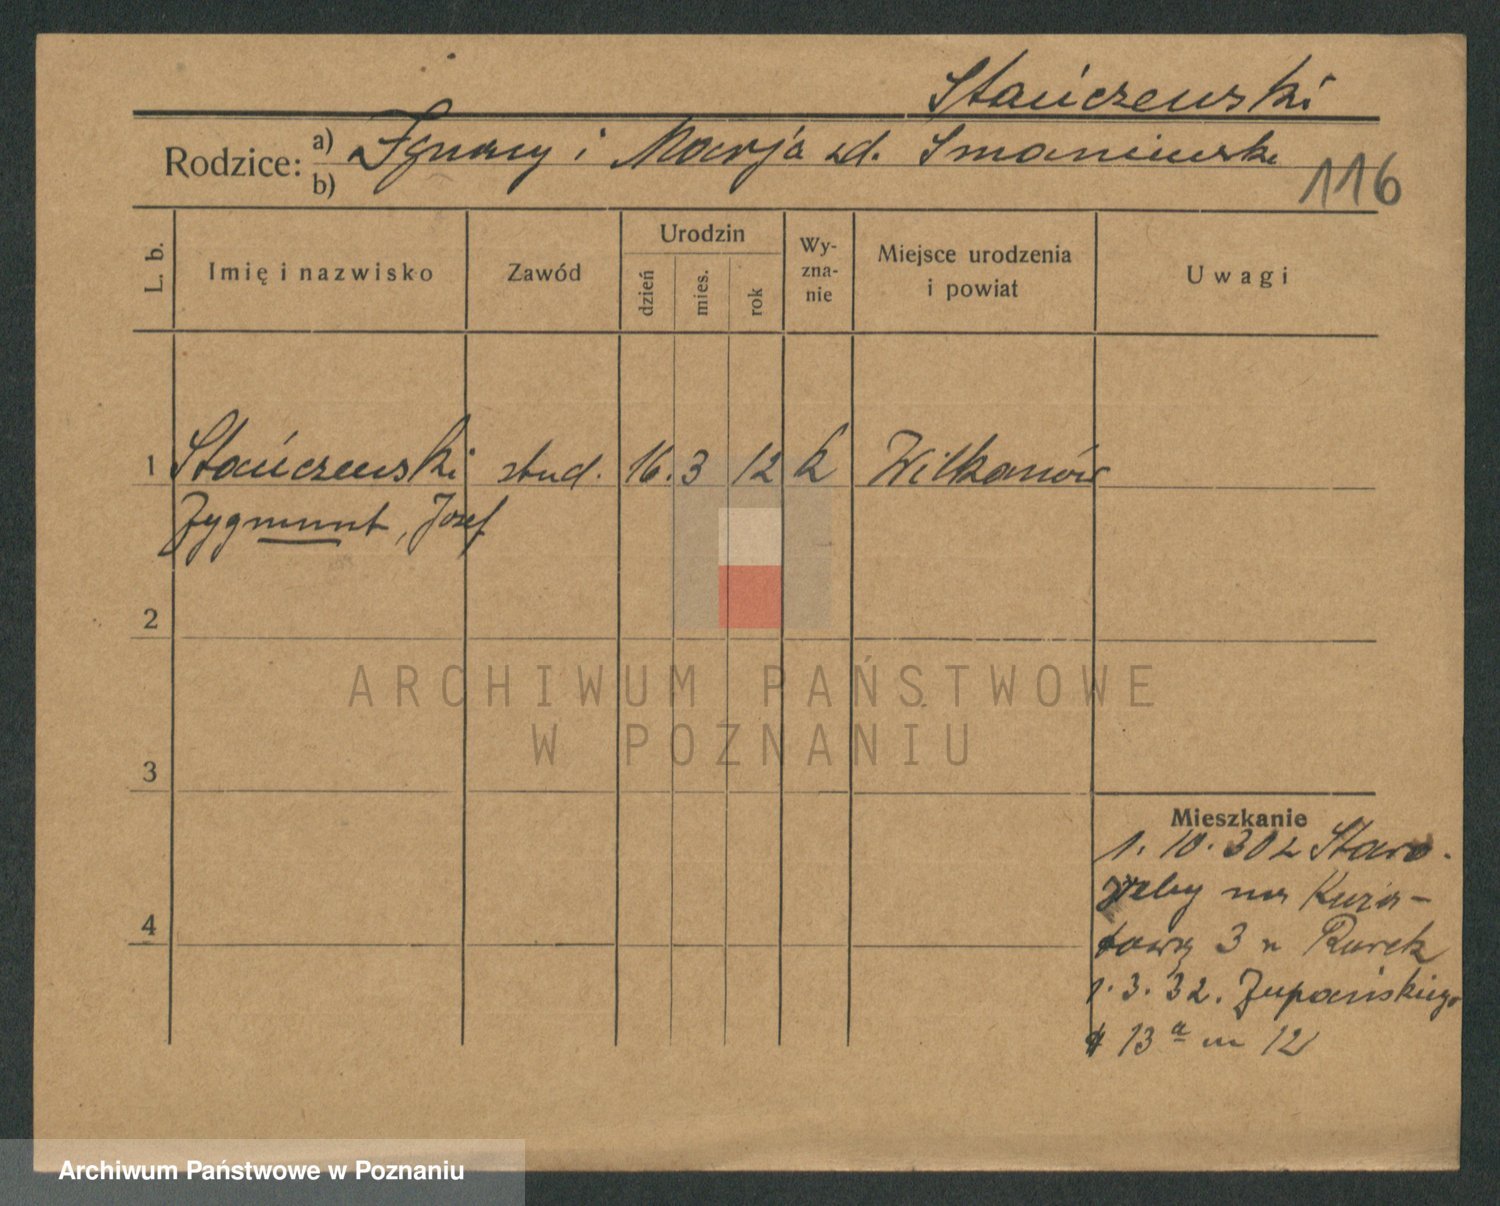 Stańczewski
Rodzice: a) Ignacy i Marja zd. Smaniewska
b)
116
L. b.
Imię i nazwisko
Zawód
Urodzin
dzień
mies.
rok
Wy-
zna-
nie
Miejsce urodzenia
i powiat
Uwagi
1 Stańczewski stud. 16. 3 12 k Wilkanów
Zygmunt, Józef
2
3
4
Mieszkanie
1. 10. 30 z Staro-
na
3 Rurek
1. 3. 32. Żupańskiego
13a m 12
ARCHIWUM PAŃSTWOWE
W POZNANIU
Archiwum Państwowe w Poznaniu